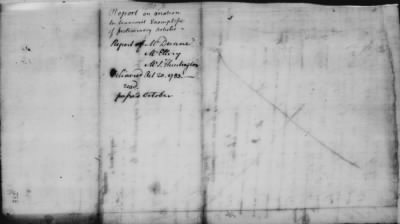 Report on motion
to transmit Exemplifn
of preliminary Articles
Report of Mr Duane
Mr Ellery
Mr S. Huntington
Delivered Oct 20, 1783
read
passed October